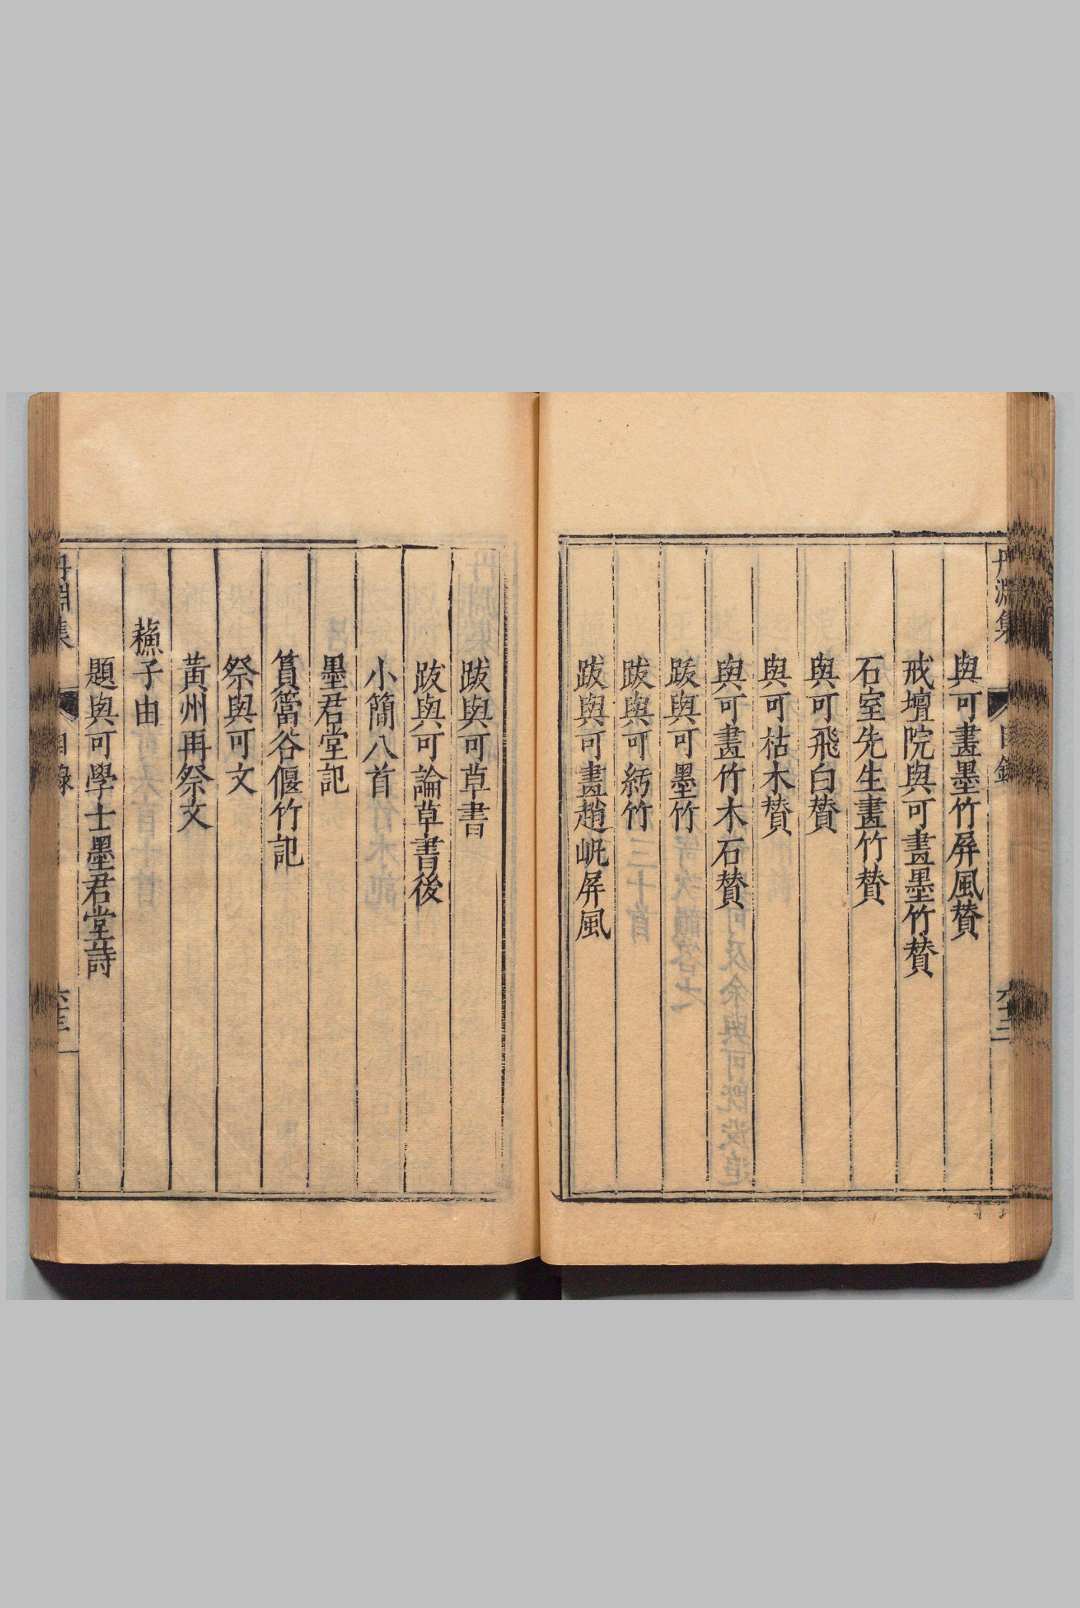 丹淵集
目錄
六十三
與可畫墨竹屏風贊
戒壇院與可畫墨竹贊
石室先生畫竹贊
與可飛白贊
與可枯木贊
與可畫竹木石贊
跋與可墨竹
跋與可紆竹
跋與可畫趙屼屏風
跋與可草書
跋與可論草書後
小簡八首
墨君堂記
篔簹谷偃竹記
祭與可文
黃州再祭文
蘓子由
題與可學士墨君堂詩
丹淵集
目錄